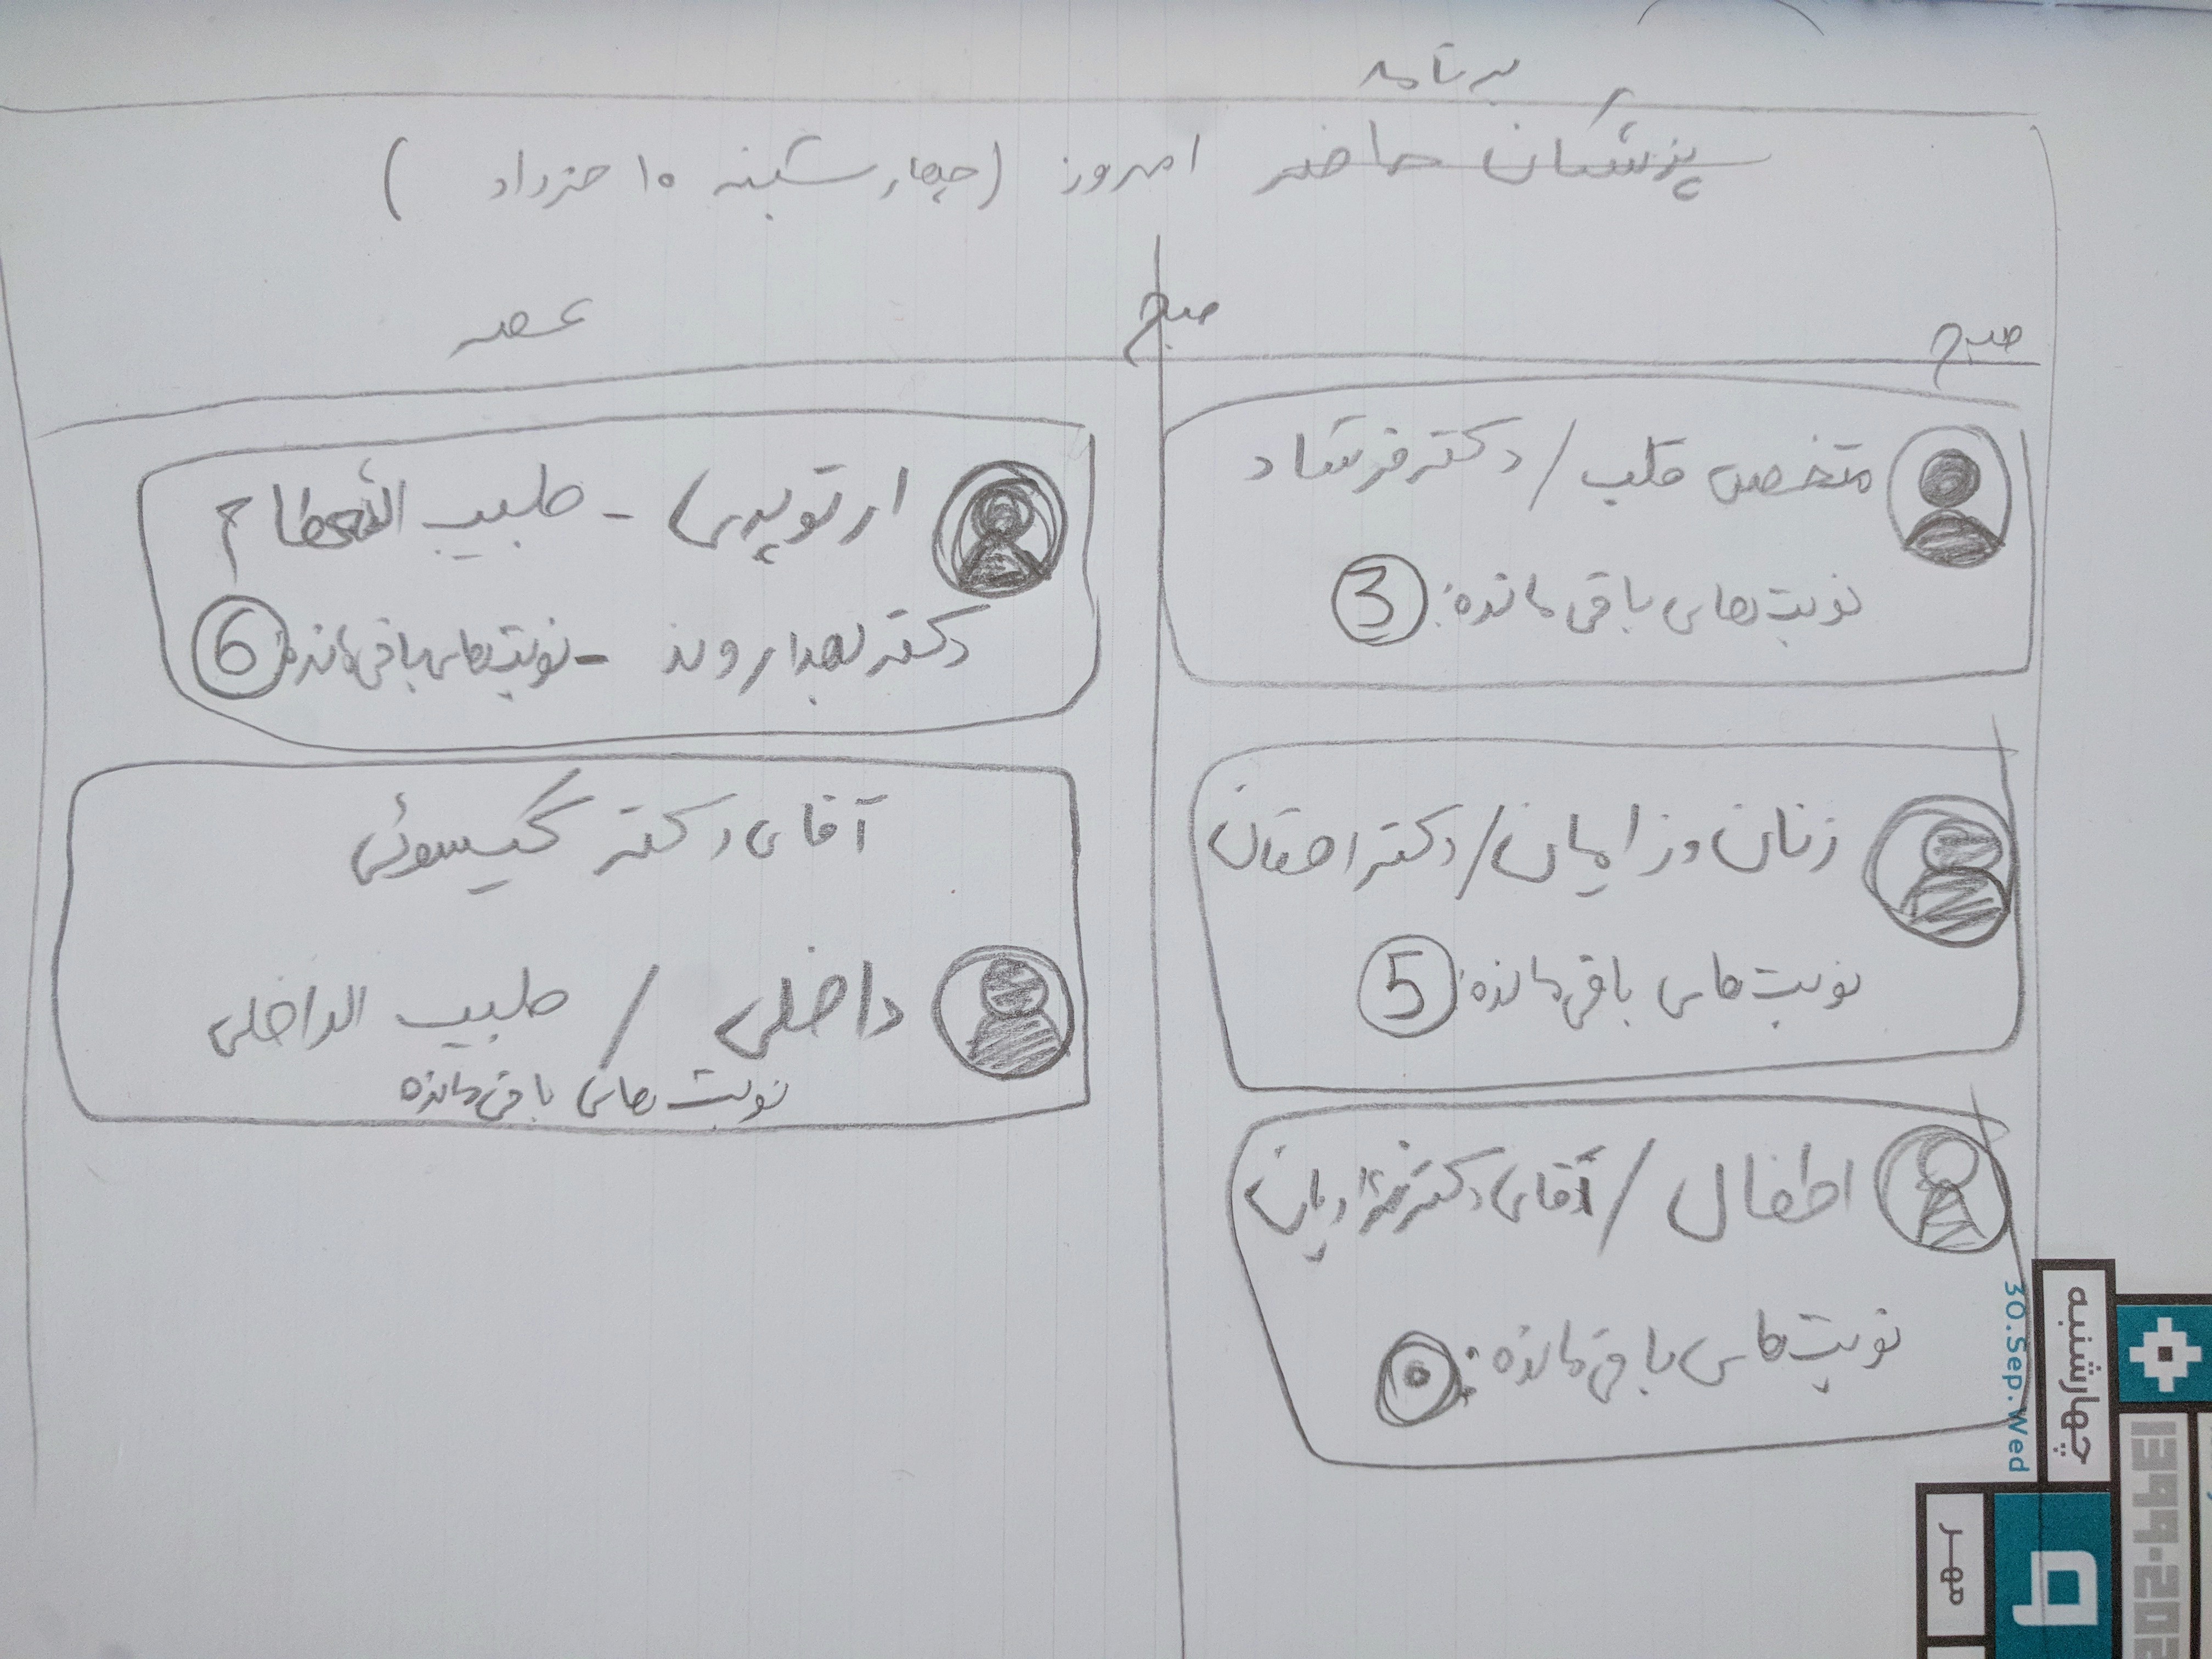 برنامه
پزشکان حاضر امروز (چهارشنبه ۱۰ خرداد )
صبح
صبح
عصر
متخصص قلب / دکتر فرشاد
نوبت‌های باقی مانده: 3
زنان و زایمان / دکتر احقان
نوبت‌های باقی مانده: 5
اطفال / آقای دکتر نژادیان
نوبت‌های باقی مانده: ۰
ارتوپدی - طبیب العظام
دکتر بهداروند - نوبت‌های باقی مانده: 6
آقای دکتر گیسوئی
داخلی / طبیب الداخلی
نوبت‌های باقی مانده
چهارشنبه
30.Sep.Wed
مهر